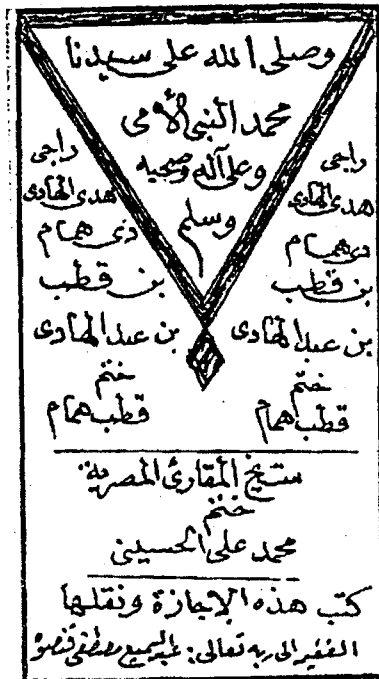 وصلى الله على سيدنا
محمد النبي الأمى
وعلى آله وصحبه
وسلم
راجى
هدى الهادى
ذى همام
بن قطب
بن عبد الهادى
ختم
قطب همام
راجى
هدى الهادى
ذى همام
بن قطب
بن عبد الهادى
ختم
قطب همام
شيخ المقارئ المصرية
ختم
محمد على الحسينى
كتب هذه الإجازة ونقلها
الفقير إلى ربه تعالى: عبد السميع مصطفى قنصوه